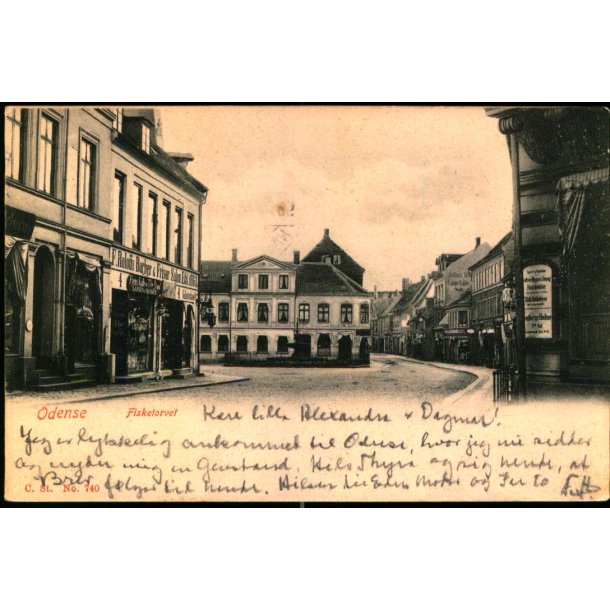 F. Rololfs Barber & Frisør Salon
Odense Fisketorvet
Kære lille Alexandra & Dagmar!
Jeg er lykkelig ankommet til Odense, hvor jeg nu sidder
og nyder min Genstand. Hils Thyra og sig hende, at
Brev følger til hende. Hilsen til Eders Moder og
C. St. No. 740